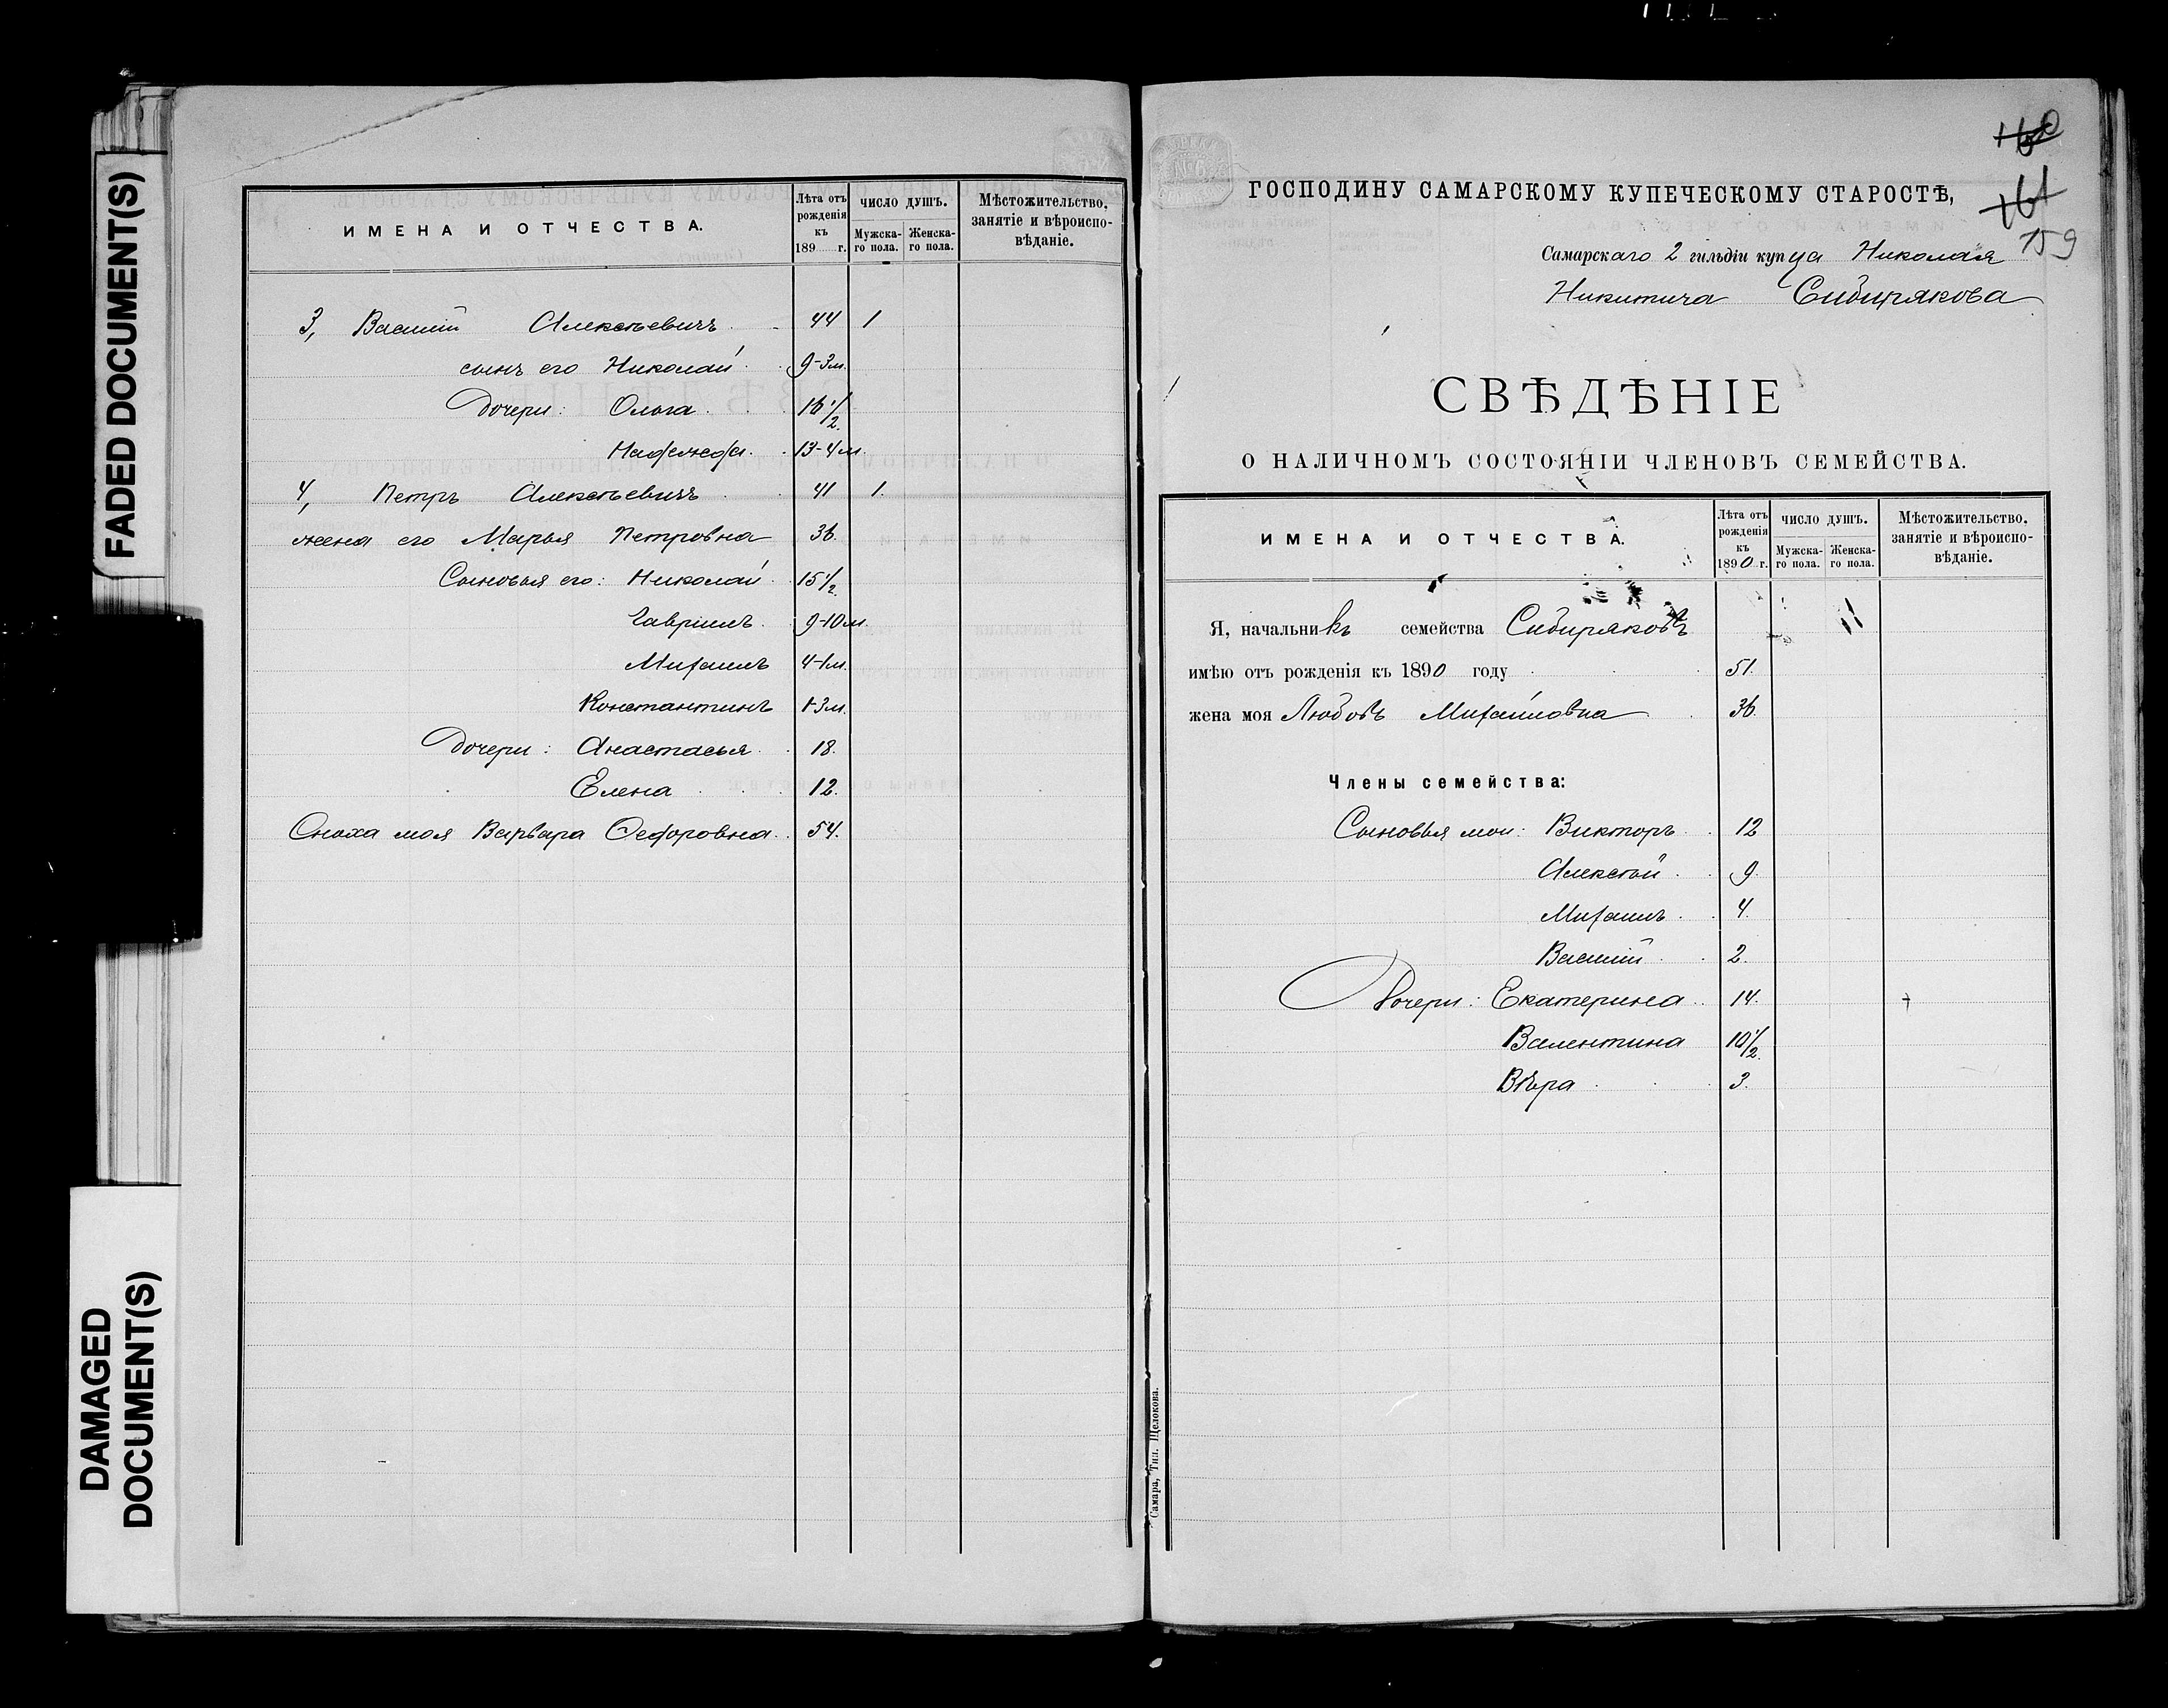 FADED DOCUMENT(S)
DAMAGED
DOCUMENT(S)
ИМЕНА И ОТЧЕСТВА.
Лѣта отъ рожденія къ 189 г.
ЧИСЛО ДУШЪ.
Мужска-го пола.
Женска-го пола.
Мѣстожительство, занятіе и вѣроиспо-вѣданіе.
3, Василій Алексѣевичъ 44 1
сынъ его Николай 9-3м.
Дочери: Ольга 16 1/2.
Надежда 13-4м.
4, Петръ Алексѣевичъ 41 1.
жена его Марья Петровна 36
Сыновья его: Николай 15 1/2.
Гавріилъ 9-10м.
Михаилъ 4-1м.
Константинъ 1-3м.
Дочери: Анастасья 18.
Елена 12.
Сноха моя Варвара Ѳедоровна 54.
160
161
159
ГОСПОДИНУ САМАРСКОМУ КУПЕЧЕСКОМУ СТАРОСТѢ,
Самарскаго 2 гильдіи купца Николая
Никитича Сибирякова
СВѢДѢНІЕ
О НАЛИЧНОМЪ СОСТОЯНІИ ЧЛЕНОВЪ СЕМЕЙСТВА.
ИМЕНА И ОТЧЕСТВА.
Лѣта отъ рожденія къ 1890 г.
ЧИСЛО ДУШЪ.
Мужска-го пола.
Женска-го пола.
Мѣстожительство, занятіе и вѣроиспо-вѣданіе.
Я, начальникъ семейства Сибиряковъ
имѣю отъ рожденія къ 1890 году 51.
жена моя Любовь Михайловна 36
Члены семейства:
Сыновья мои: Викторъ 12
Алексѣй 9.
Михаилъ 4.
Василій 2.
Дочери: Екатерина 14.
Валентина 10 1/2.
Вѣра 3.
Самара, Тип. Щелокова.